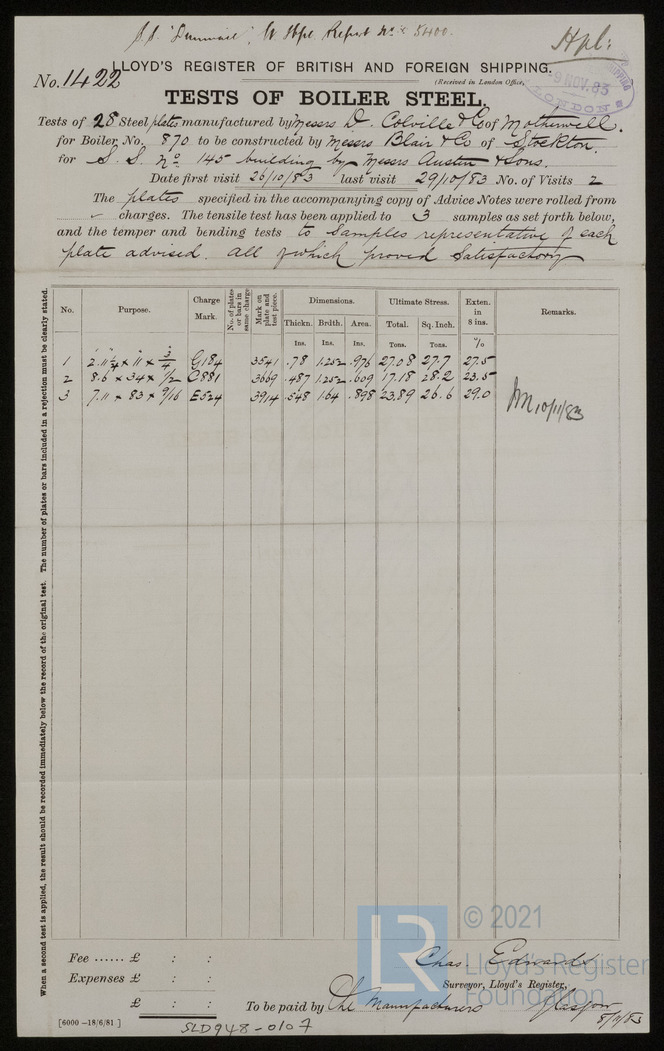 S.S. "Dunmail", W Hpl. Report No. 5400.
Hpl:
LLOYD'S REGISTER OF BRITISH AND FOREIGN SHIPPING.
No. 1422
(Received in London Office,
9 NOV. 83
LONDON
TESTS OF BOILER STEEL.
Tests of 28 Steel plates manufactured by Messrs D. Colville & Co of Motherwell.
for Boiler No. 870 to be constructed by Messrs Blair & Co of Stockton.
for S. S. No. 145 building by Messrs Austin & Sons.
Date first visit 26/10/83 last visit 29/10/83 No. of Visits 2
The plates specified in the accompanying copy of Advice Notes were rolled from
charges. The tensile test has been applied to 3 samples as set forth below,
and the temper and bending tests to samples representative of each
plate advised. All of which proved Satisfactory
When a second test is applied, the result should be recorded immediately below the record of the original test. The number of plates or bars included in a rejection must be clearly stated.
No. Purpose. Charge Mark. No. of plates or bars in same charge Mark on plate and test piece. Dimensions. Ultimate Stress. Exten. in 8 ins. Remarks.
Thickn. Brdth. Area. Total. Sq. Inch.
Ins. Ins. Ins. Tons. Tons. %
1 2.11 1/4 × 11 × 3/4 G184 3541 .78 1.252 .976 27.08 27.7 27.5
2 8.6 × 34 × 1/2 C881 3669 .487 1.252 .609 17.18 28.2 23.5
3 7.11 × 83 × 9/16 E524 3914 .548 1.64 .898 23.89 26.6 29.0
10/11/83
© 2021
LR
Lloyd's Register
Foundation
Fee ...... £ : :
Expenses £ : :
£ : :
Chas. Edwards
Surveyor, Lloyd's Register,
To be paid by The Manufacturers Glasgow
8/11/83
[6000 -18/6/81 ]
SLD948-0107